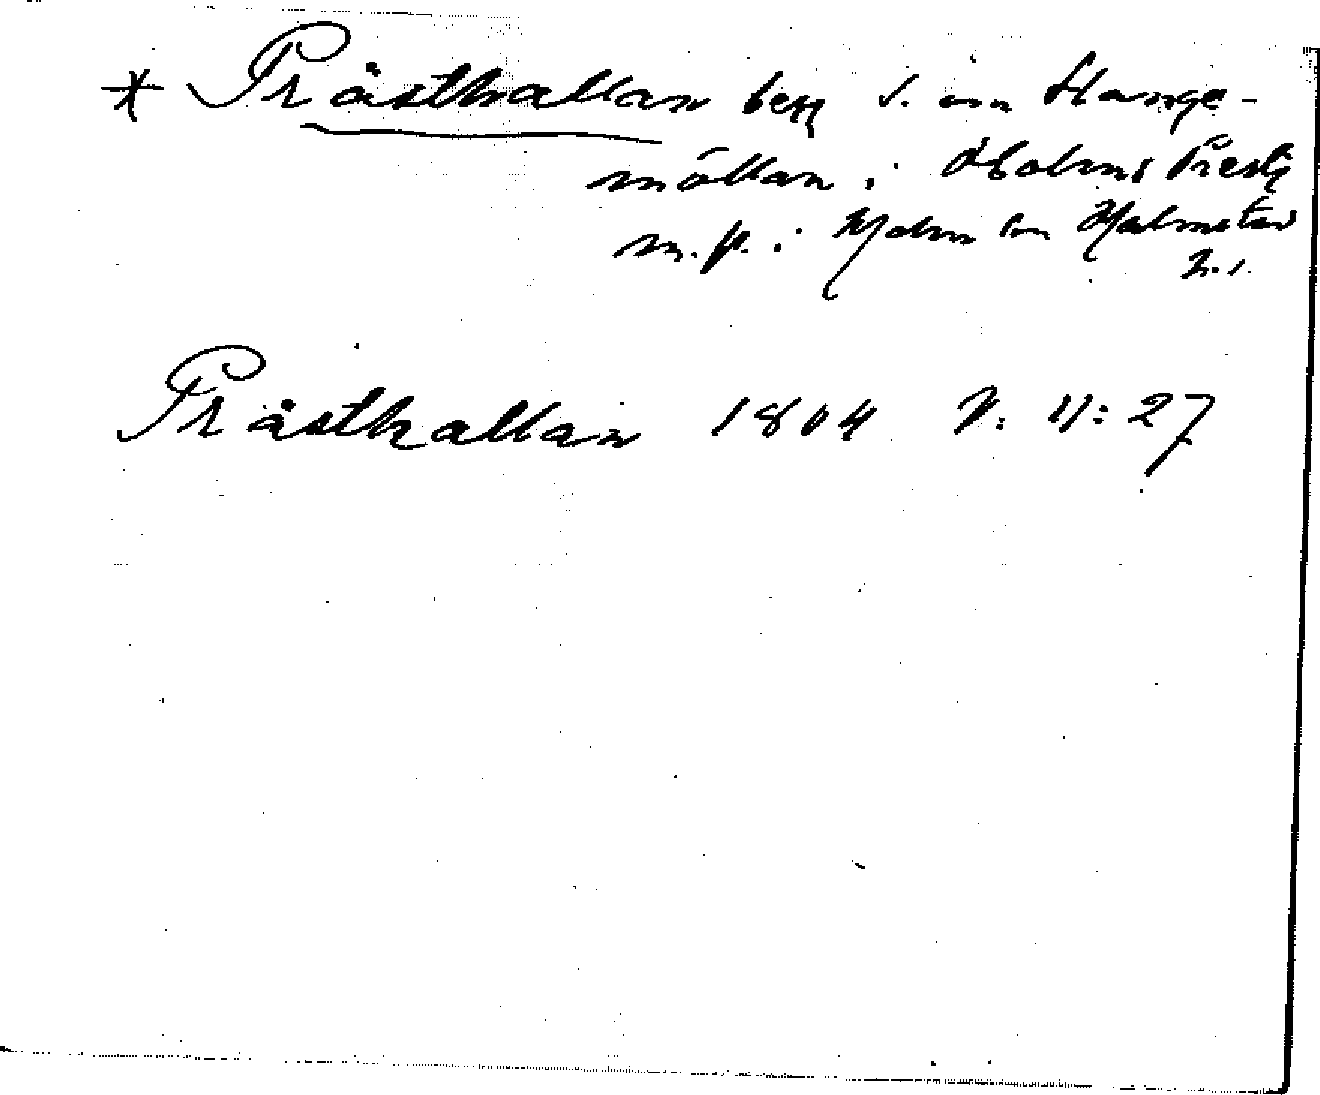 * Prästhallan berg S. om Slange-
möllan i Holms Prestg
m. fl. i Holm sn Halmstad
h. s.
Prästhallan 1804 V: 11: 27